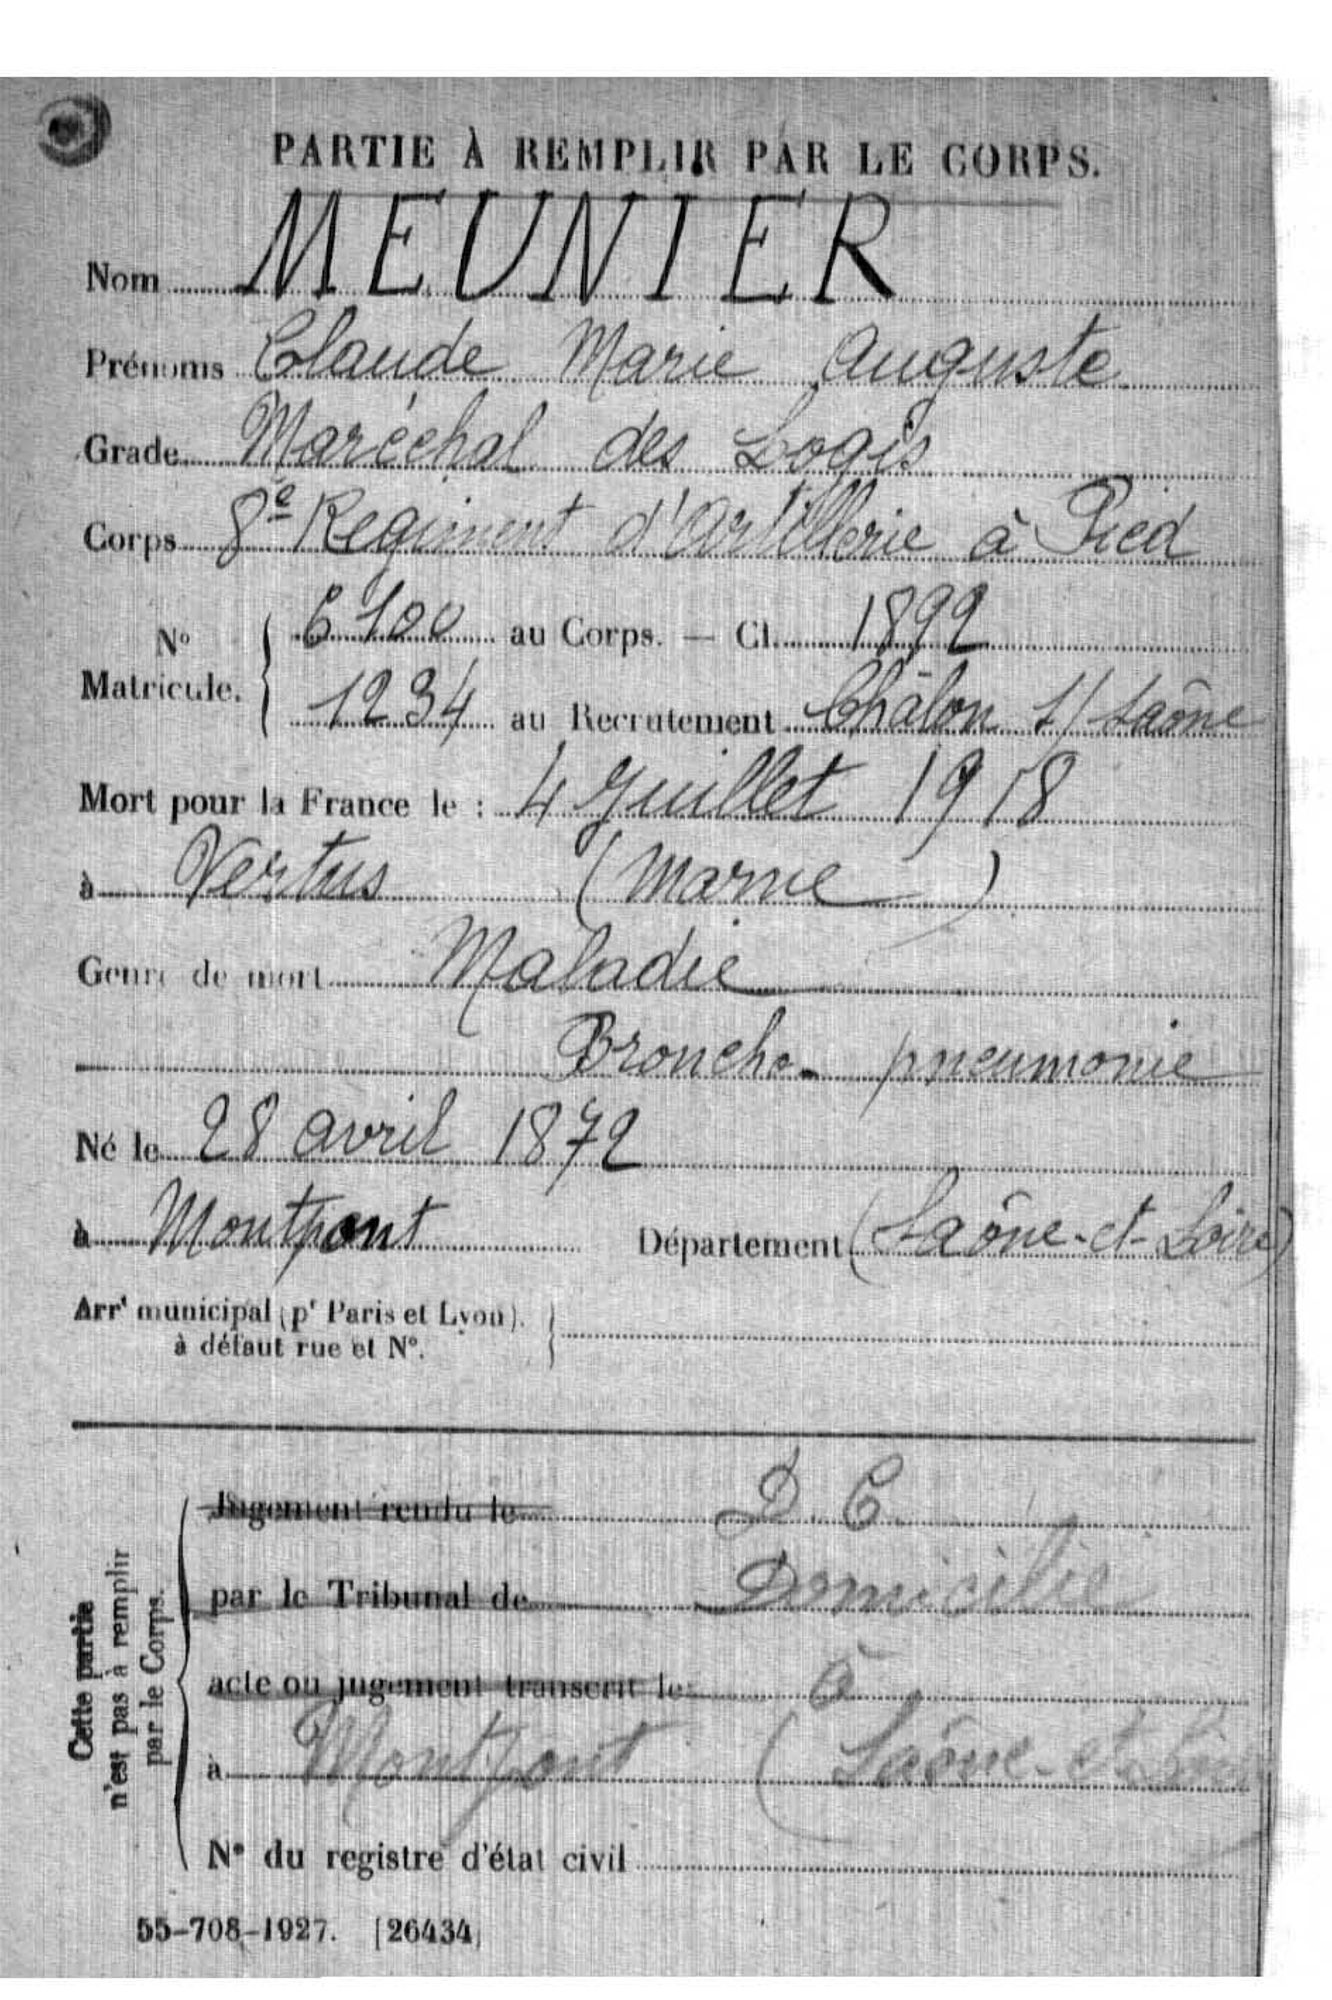 PARTIE À REMPLIR PAR LE CORPS.
Nom MEUNIER
Prénoms Claude Marie Auguste
Grade Maréchal des Logis
Corps 8e Regiment d'Artillerie à Pied
N° Matricule. { 6100 au Corps. — Cl. 1892
1234 au Recrutement Châlon s/ Saône
Mort pour la France le : 4 Juillet 1918
à Vertus (Marne)
Genre de mort Maladie
Broncho-pneumonie
Né le 28 avril 1872
à Montpont Département (Saône-et-Loire)
Arrt municipal (pr Paris et Lyon). }
à défaut rue et N°.
Cette partie
n'est pas à remplir
par le Corps.
Jugement rendu le D. C.
par le Tribunal de Domicilié
acte ou jugement transcrit le à
à Montpont (Saône-et-Loire
N° du registre d'état civil
55-708-1927. [26434]